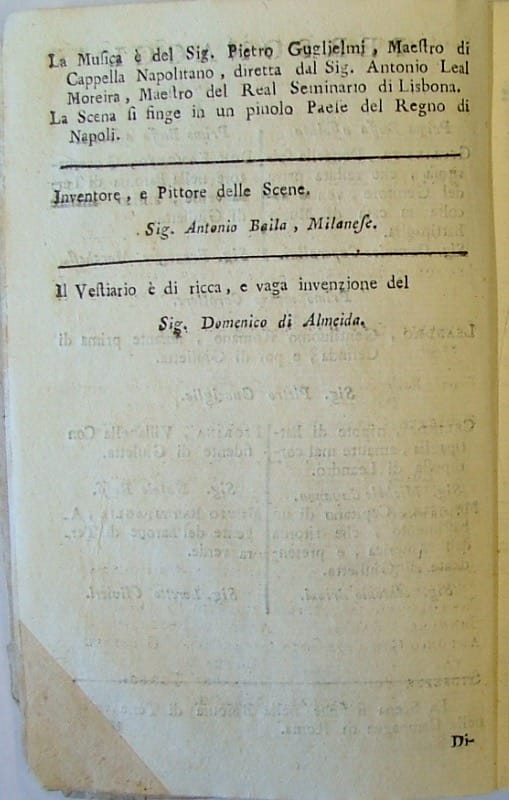 La Muſica è del Sig. Pietro Guglielmi, Maeſtro di
Cappella Napolitano, diretta dal Sig. Antonio Leal
Moreira, Maeſtro del Real Seminario di Lisbona.
La Scena ſi finge in un piɔolo Paeſe del Regno di
Napoli.
Inventore, e Pittore delle Scene.
Sig. Antonio Baila, Milaneſe.
Il Veſtiario è di ricca, e vaga invenzione del
Sig. Domenico di Almeida.
Di-